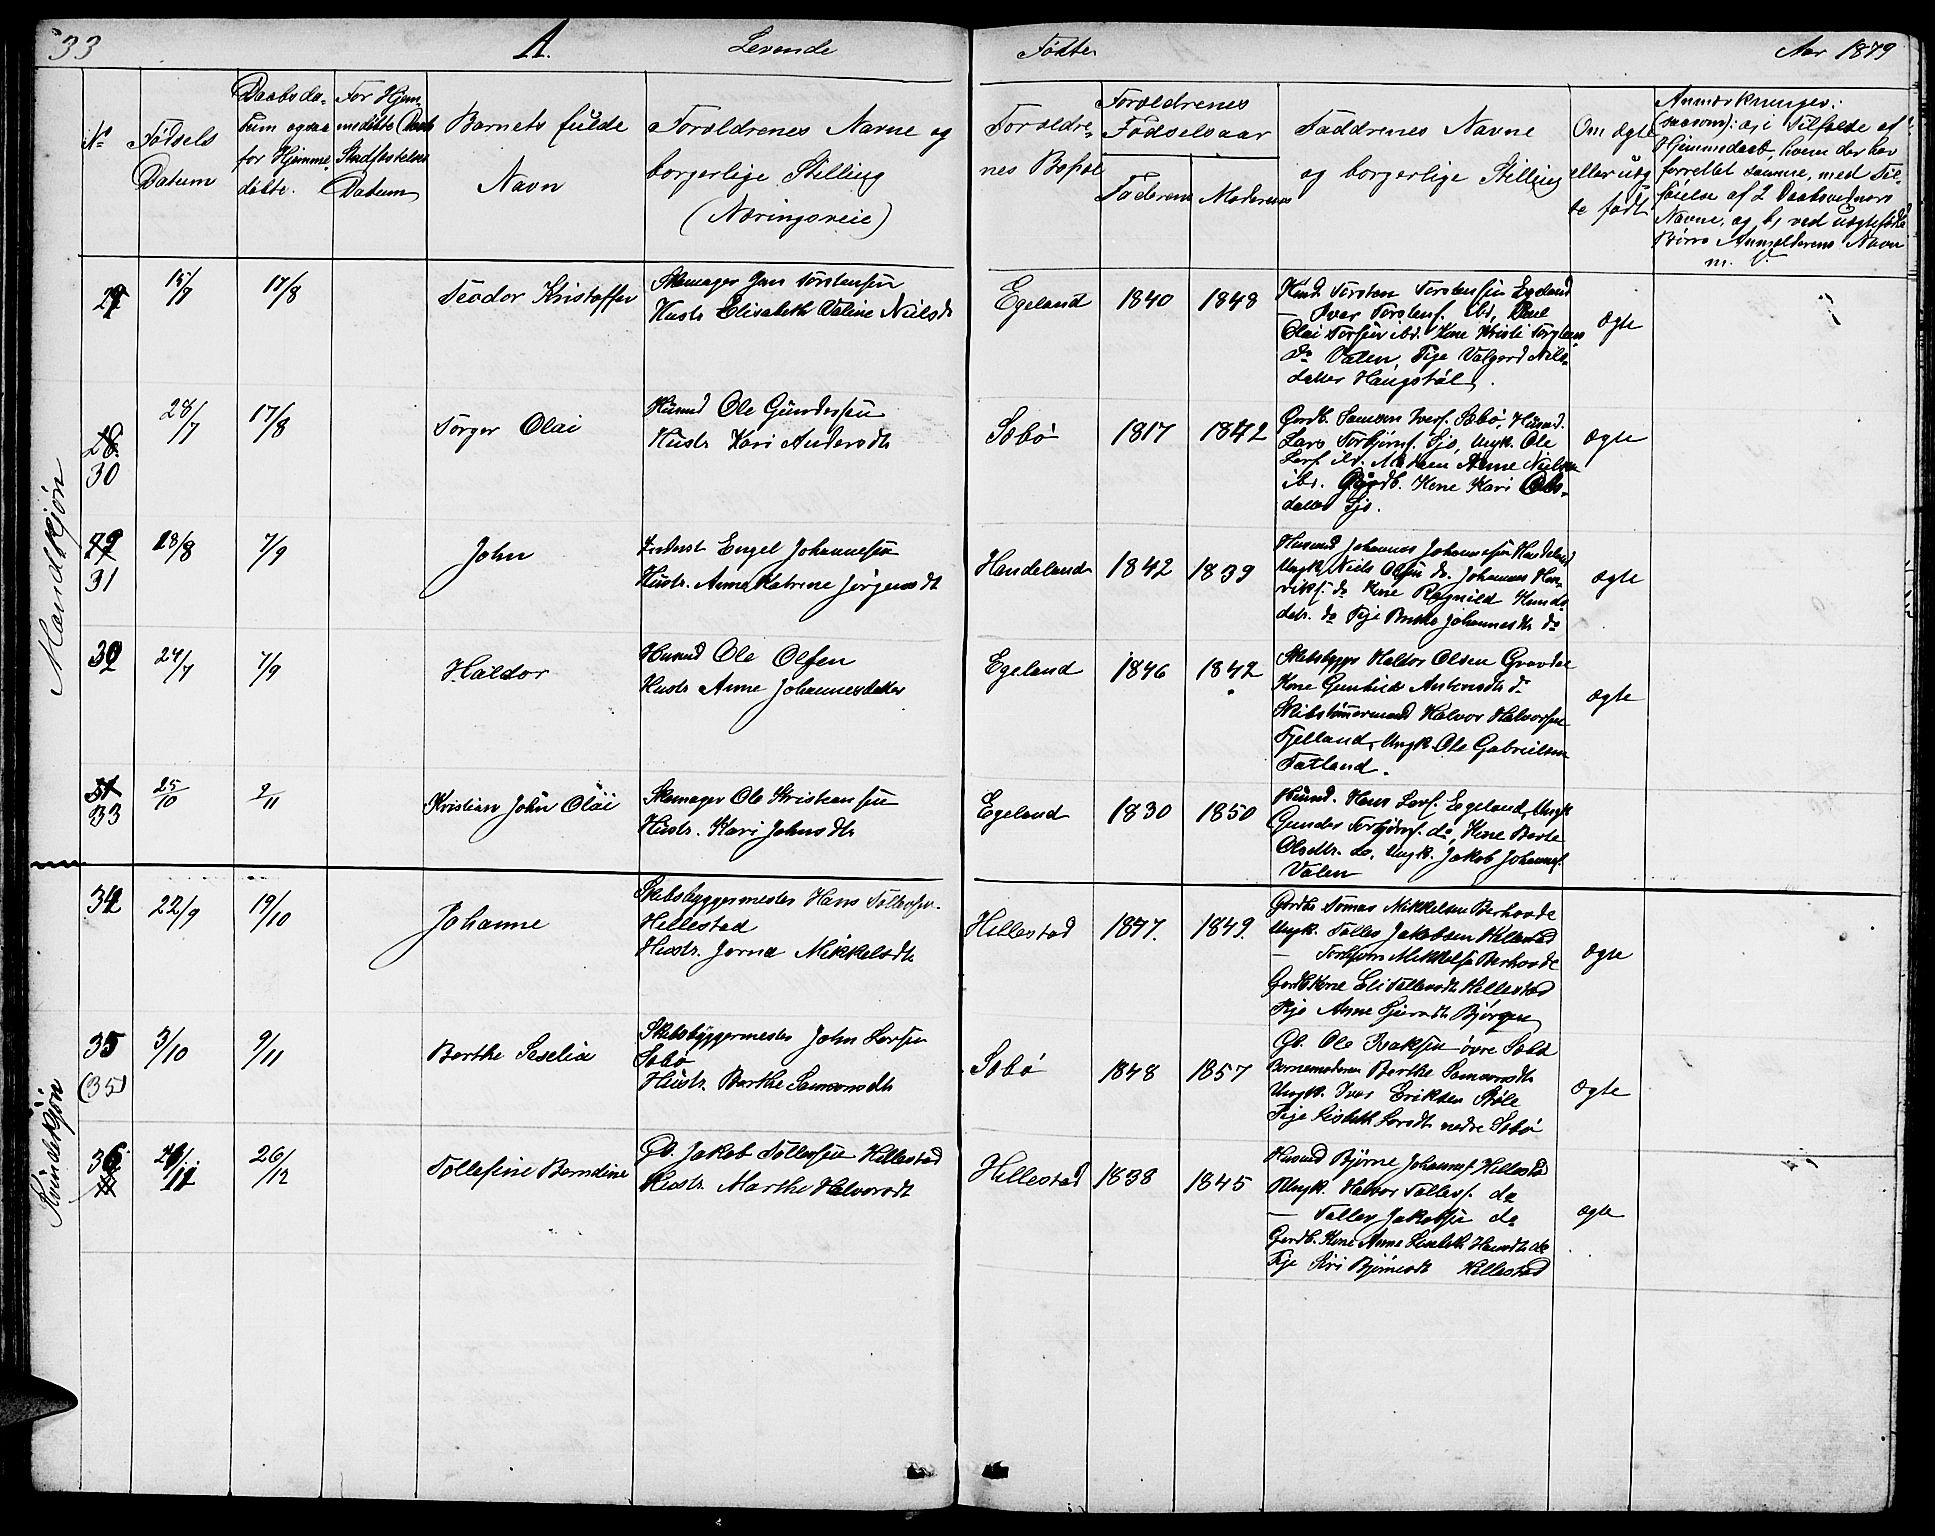 33 A. Levende Fødte Aar 1879
No
Fødsels Datum
Daabsdatum ogsaa for Hjemmedøbte.
For Hjemmedøbte Stadfæstelses Datum
Barnets fulde Navn
Forældrenes Navne og borgerlige Stilling (Næringsveie)
Forældrenes Bopæl
Forældrenes Fødselsaar
Faderens
Moderens
Faddrenes Navne og borgerlige Stilling
Om ægte eller uægte født
Anmærkninger:
(saasom): a, i Tilfælde af
Hjemmedaab, hvem der har
forrettet samme, med Til-
føielse af 2 Daabsvidners
Navne, og b, ved uægtefødte
Børns Anmelderens Navn
m. v.
Mandkjøn
29 15/7 17/8 Teodor Kristoffer
Skomager Jan Torstensen
Hustr Elisabeth Valine Nilsd
Egeland 1840 1848
Husmd. Torsten Torstensen Egeland
— Ivar Torstens. ibd,
Olai Torsen ibd. Kone Kristi
do Valen, Pige Valgerd Nils-
datter Haugstøl.
ægte
28 30 28/7 17/8 Torger Olai
Husmd Ole Gundersen
Hustr Kari Andersdtr
Sæbø 1817 1842
Gordb. Samson Ivers. Sæbø, Husmd.
Lars Torbjørns. Sjo, Ungk. Ole
Lars. ibd. Anne Niels
ibd. Gordb. Kone Kari Ols-
datter Sjo.
ægte
29 31 18/8 7/9 John
Inderst Engel Johannesen
Hustr. Anne Katrine Jørgensdt
Handeland 1842 1839
Husmd Johannes Johannesen Handeland
Ungk. Niels Olsen do. Johannes Hen-
riks. do Kone Ragnild Knuds-
datr. do Pige Johannesdtr do
ægte
32 24/7 7/9 Haldor
Husmd Ole Olsen
Hustr Anne Johannesdatter
Egeland 1846 1842
Skibsbygger Haldor Olsen Gravdal
Kone Gunhild do
Skibstømmermand Halvor Halvorsen
Fjelland, Ungk. Ole Gabrielsen
Tatland.
ægte
31 33 25/10 9/11 Kristian John Olai
Skomager Ole Kristiansen
Hustr. Kari Johnsdtr
Egeland 1830 1850
Husmd. Hans Lars. Egeland, Ungk
Gunder Torbjørns. do, Kone Berte
Olsdtr. do, Ungk. Jakob Johannes.
Valen
Kvindekjøn
34 22/9 19/10 Johanne
Skibsbyggermester Hans Tollefsen
Hillestad
Hustr. Jorna Mikkelsdtr
Hillestad 1847. 1849.
Gordbr Tomas Mikkelsen Berhovde
Ungk. Tolles Jakobsen Hillestad
— Torbjørn Mikkelsen Berhovde
Gordb. Kone Eli Tollevsdtr Hillestad
Pige Anne Bjørgen
ægte
35 (35) 3/10 9/11 Berthe Seselia
Skibsbyggermester John Larsen
Sæbø
Hustr. Berthe Samsonsdtr
Sæbø 1848 1857
Gb. Ole Isaksen øvre
Barnemoderen Berthe Samsonsdtr
Ungk. Ivar Eriksen Støle
Pige Lisbeth Larsdtr nedre Sæbø
ægte
36 26/12 Tollefine Berndine
Gb. Jakob Tollefsen Hillestad
Hustr. Marthe Halvorsdt
Hillestad 1838 1845
Husmd Bjørne Johannes. Hillestad
Ungk. Halvor Tolless. do
— Tolles Jakobsen do
Gordb. Kone Anne Liesbeth Hansdtr do
Pige Siri Bjørnesdt Hillestad
ægte